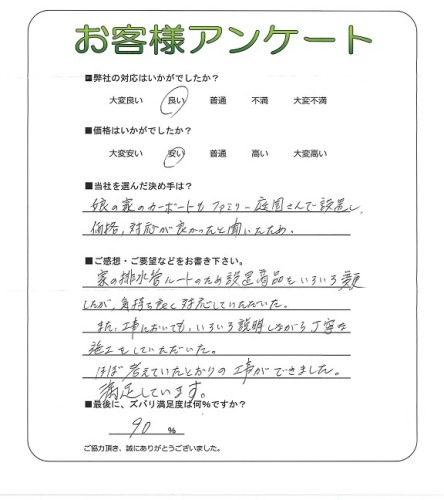 お客様アンケート
■弊社の対応はいかがでしたか？
大変良い 良い 普通 不満 大変不満
■価格はいかがでしたか？
大変安い 安い 普通 高い 大変高い
■当社を選んだ決め手は？
娘の家のカーポートもファミリー庭園さんで設置し、
価格，対応が良かったと聞いたため。
■ご感想・ご要望などをお書き下さい。
家の排水管ルートのため設置商品をいろいろ変更
したが，気持ち良く対応していただいた。
また，工事においても，いろいろ説明しながら丁寧な
施工をしていただいた。
ほぼ考えていたとおりの工事ができました。
満足しています。
■最後に、ズバリ満足度は何％ですか？
90 ％
ご協力頂き、誠にありがとうございました。